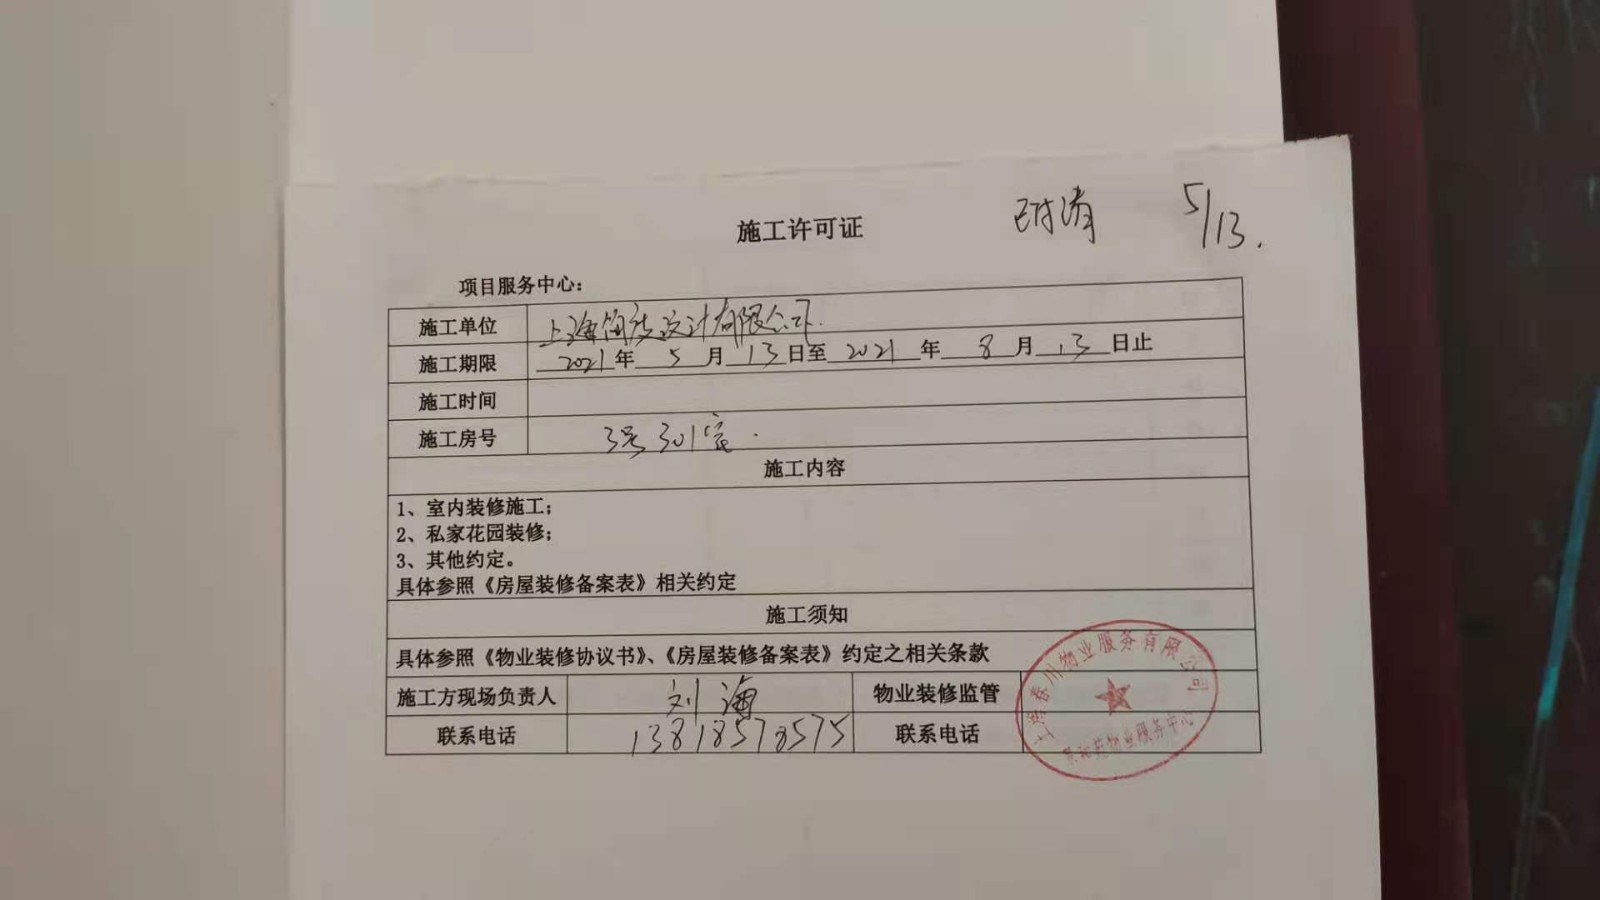 施工许可证
已付清 5/13.
项目服务中心:
施工单位 上海简法设计有限公司.
施工期限 2021年 5 月 13日至 2021 年 8 月 13 日止
施工时间
施工房号 3号301室.
施工内容
1、室内装修施工;
2、私家花园装修;
3、其他约定。
具体参照《房屋装修备案表》相关约定
施工须知
具体参照《物业装修协议书》、《房屋装修备案表》约定之相关条款
施工方现场负责人 刘海 物业装修监管
联系电话 13818578575 联系电话
上海春川物业服务有限公司
苑物业服务中心